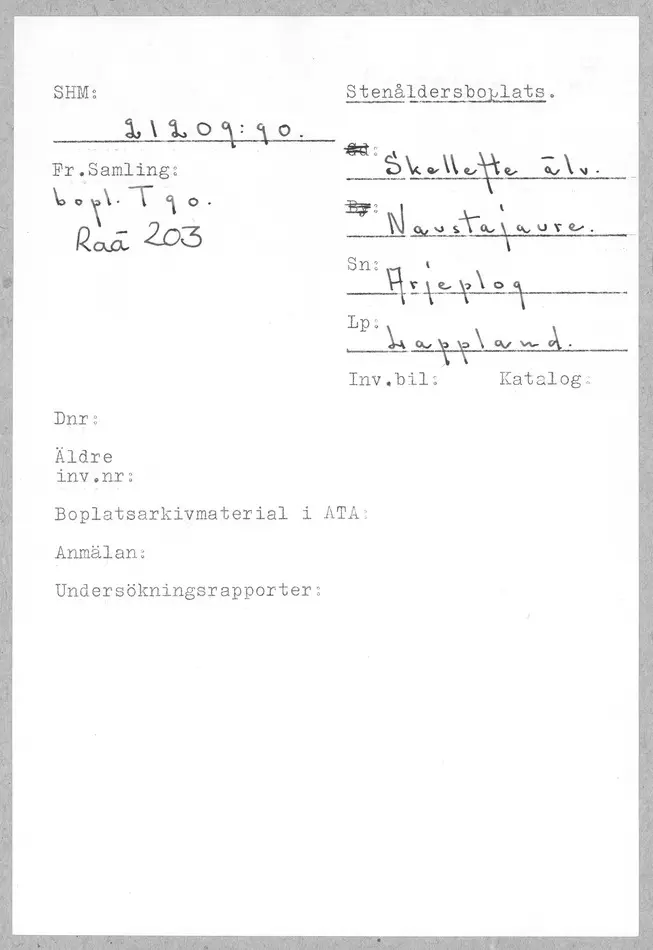 SHM:
21209:90.
Fr.Samling:
bopl. T 90.
Raä 203
Stenåldersboplats.
Gd: Skellefte älv.
By: Naustajaure.
Sn: Arjeplog
Lp: Lappland.
Inv.bil: Katalog:
Dnr:
Äldre
inv.nr:
Boplatsarkivmaterial i ATA:
Anmälan:
Undersökningsrapporter: